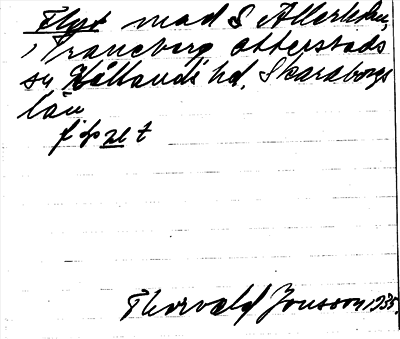 Flyt mad S Allerleden,
i Traneberg Otterstads
sn Kållands hd. Skaraborgs
län
Thorvald Jonsson 1935.